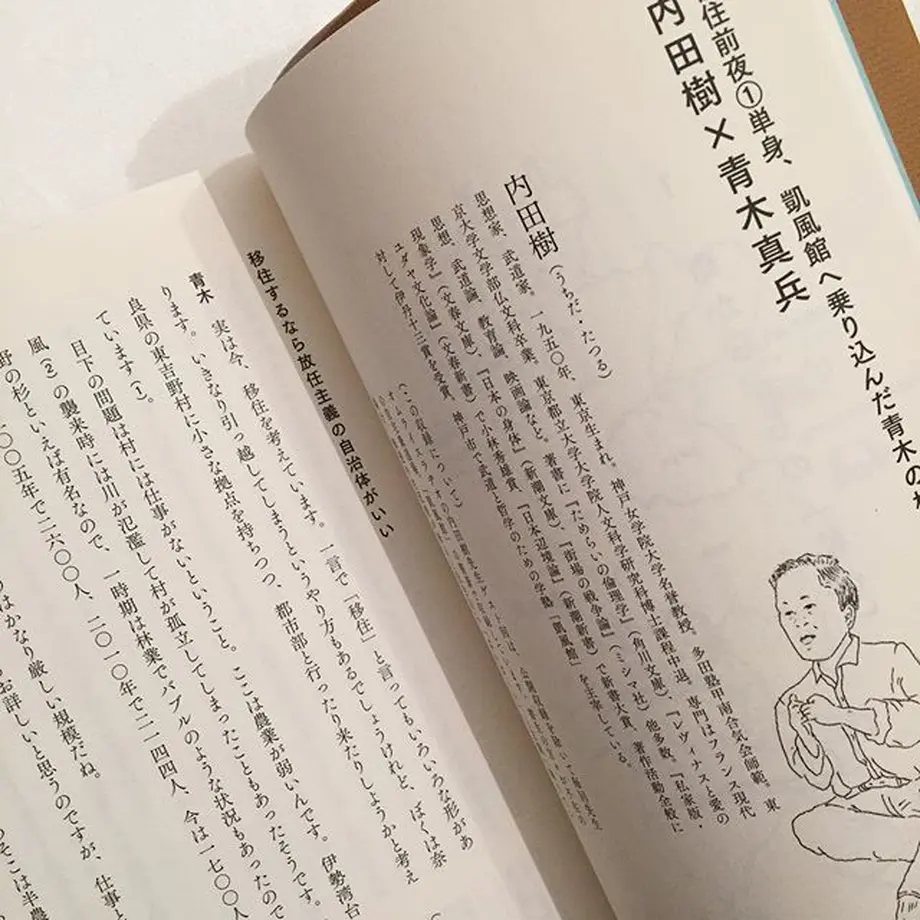 住前夜①単身、凱風館へ乗り込んだ青木の
内田樹×青木真兵
内田樹(うちだ・たつる)
思想家、武道家。一九五〇年、東京生まれ。神戸女学院大学名誉教授。多田塾甲南合気会師範。東
京大学文学部仏文科卒業、東京都立大学大学院人文科学研究科博士課程中退。専門はフランス現代
思想、武道論、教育論、映画論など。著書に『ためらいの倫理学』(角川文庫)、『レヴィナスと愛の
現象学』(文春文庫)、『日本の身体』(新潮文庫)、『街場の戦争論』(ミシマ社)、他多数。『私家版・
ユダヤ文化論』(文春新書)で小林秀雄賞、『日本辺境論』(新潮新書)で新書大賞、著作活動全般に
対して伊丹十三賞を受賞。神戸市で武道と哲学のための学塾「凱風館」を主宰している。
(この収録について)
移住するなら放任主義の自治体がいい
青木 実は今、移住を考えています。一言で「移住」と言ってもいろいろな形があ
ります。いきなり引っ越してしまうというやり方もあるでしょうけれど、ぼくは奈
良県の東吉野村に小さな拠点を持ちつつ、都市部と行ったり来たりしようかと考え
ています(1)。
目下の問題は村には仕事がないということ。ここは農業が弱いんです。伊勢湾台
風(2)の襲来時には川が氾濫して村が孤立してしまったこともあったそうです。
野の杉といえば有名なので、一時期は林業でバブルのような状況もあったので
〇〇五年で二六〇〇人、二〇一〇年で二一四四人、今は一七〇〇人
はかなり厳しい規模だね。
お詳しいと思うのですが、仕事と
そこは半農